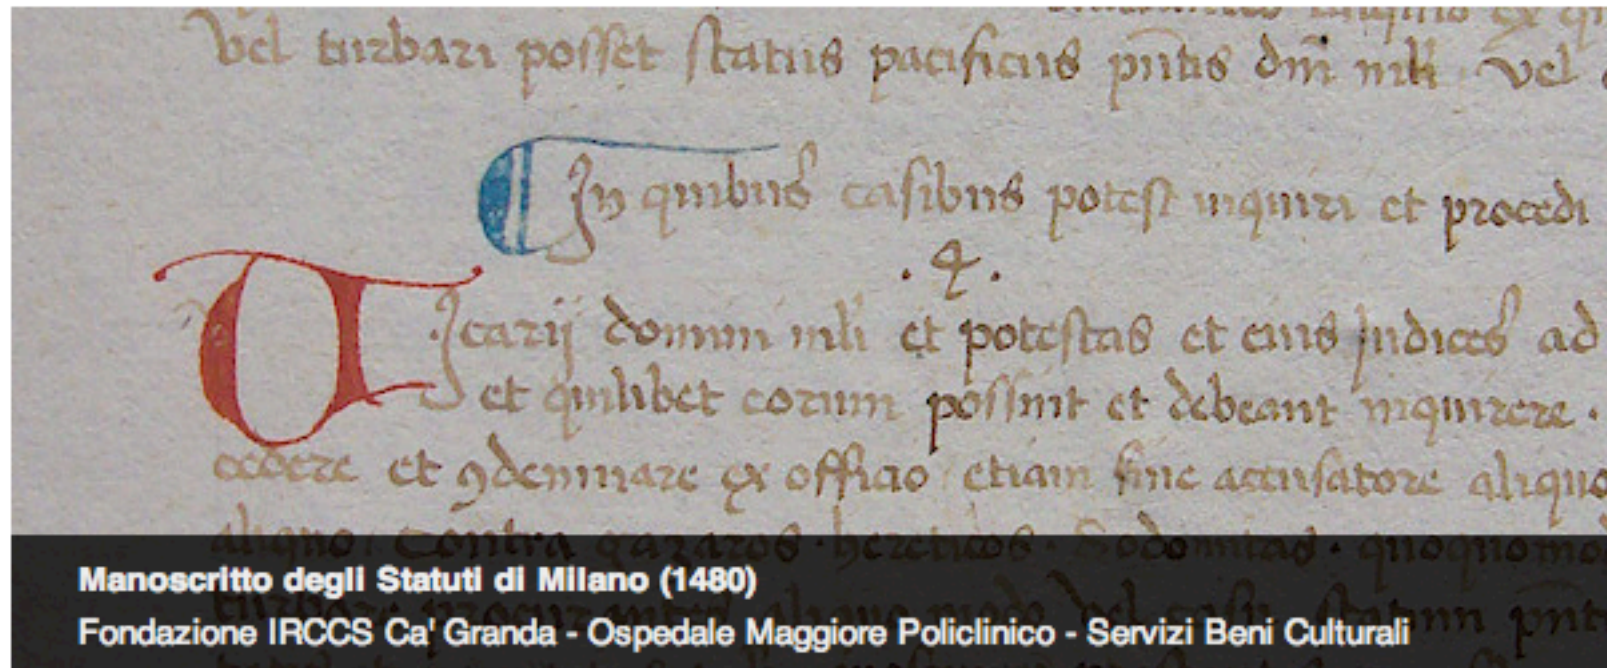 vel turbari posset status pacificus pñtis dñi mli. vel
In quibus casibus potest inquiri et procedi
. 4 .
Vicarij domini mli et potestas et eius Judices ad
et quilibet eorum possint et debeant inquirere .
cedere et 9demnare ex officio etiam sine accusatore aliquo
aliquo. Contra gazaros. hereticos. Sodomitas. quoquomod
turbare procurantes aliquo modo vel casu statum pñt
Manoscritto degli Statuti di Milano (1480)
Fondazione IRCCS Ca' Granda - Ospedale Maggiore Policlinico - Servizi Beni Culturali